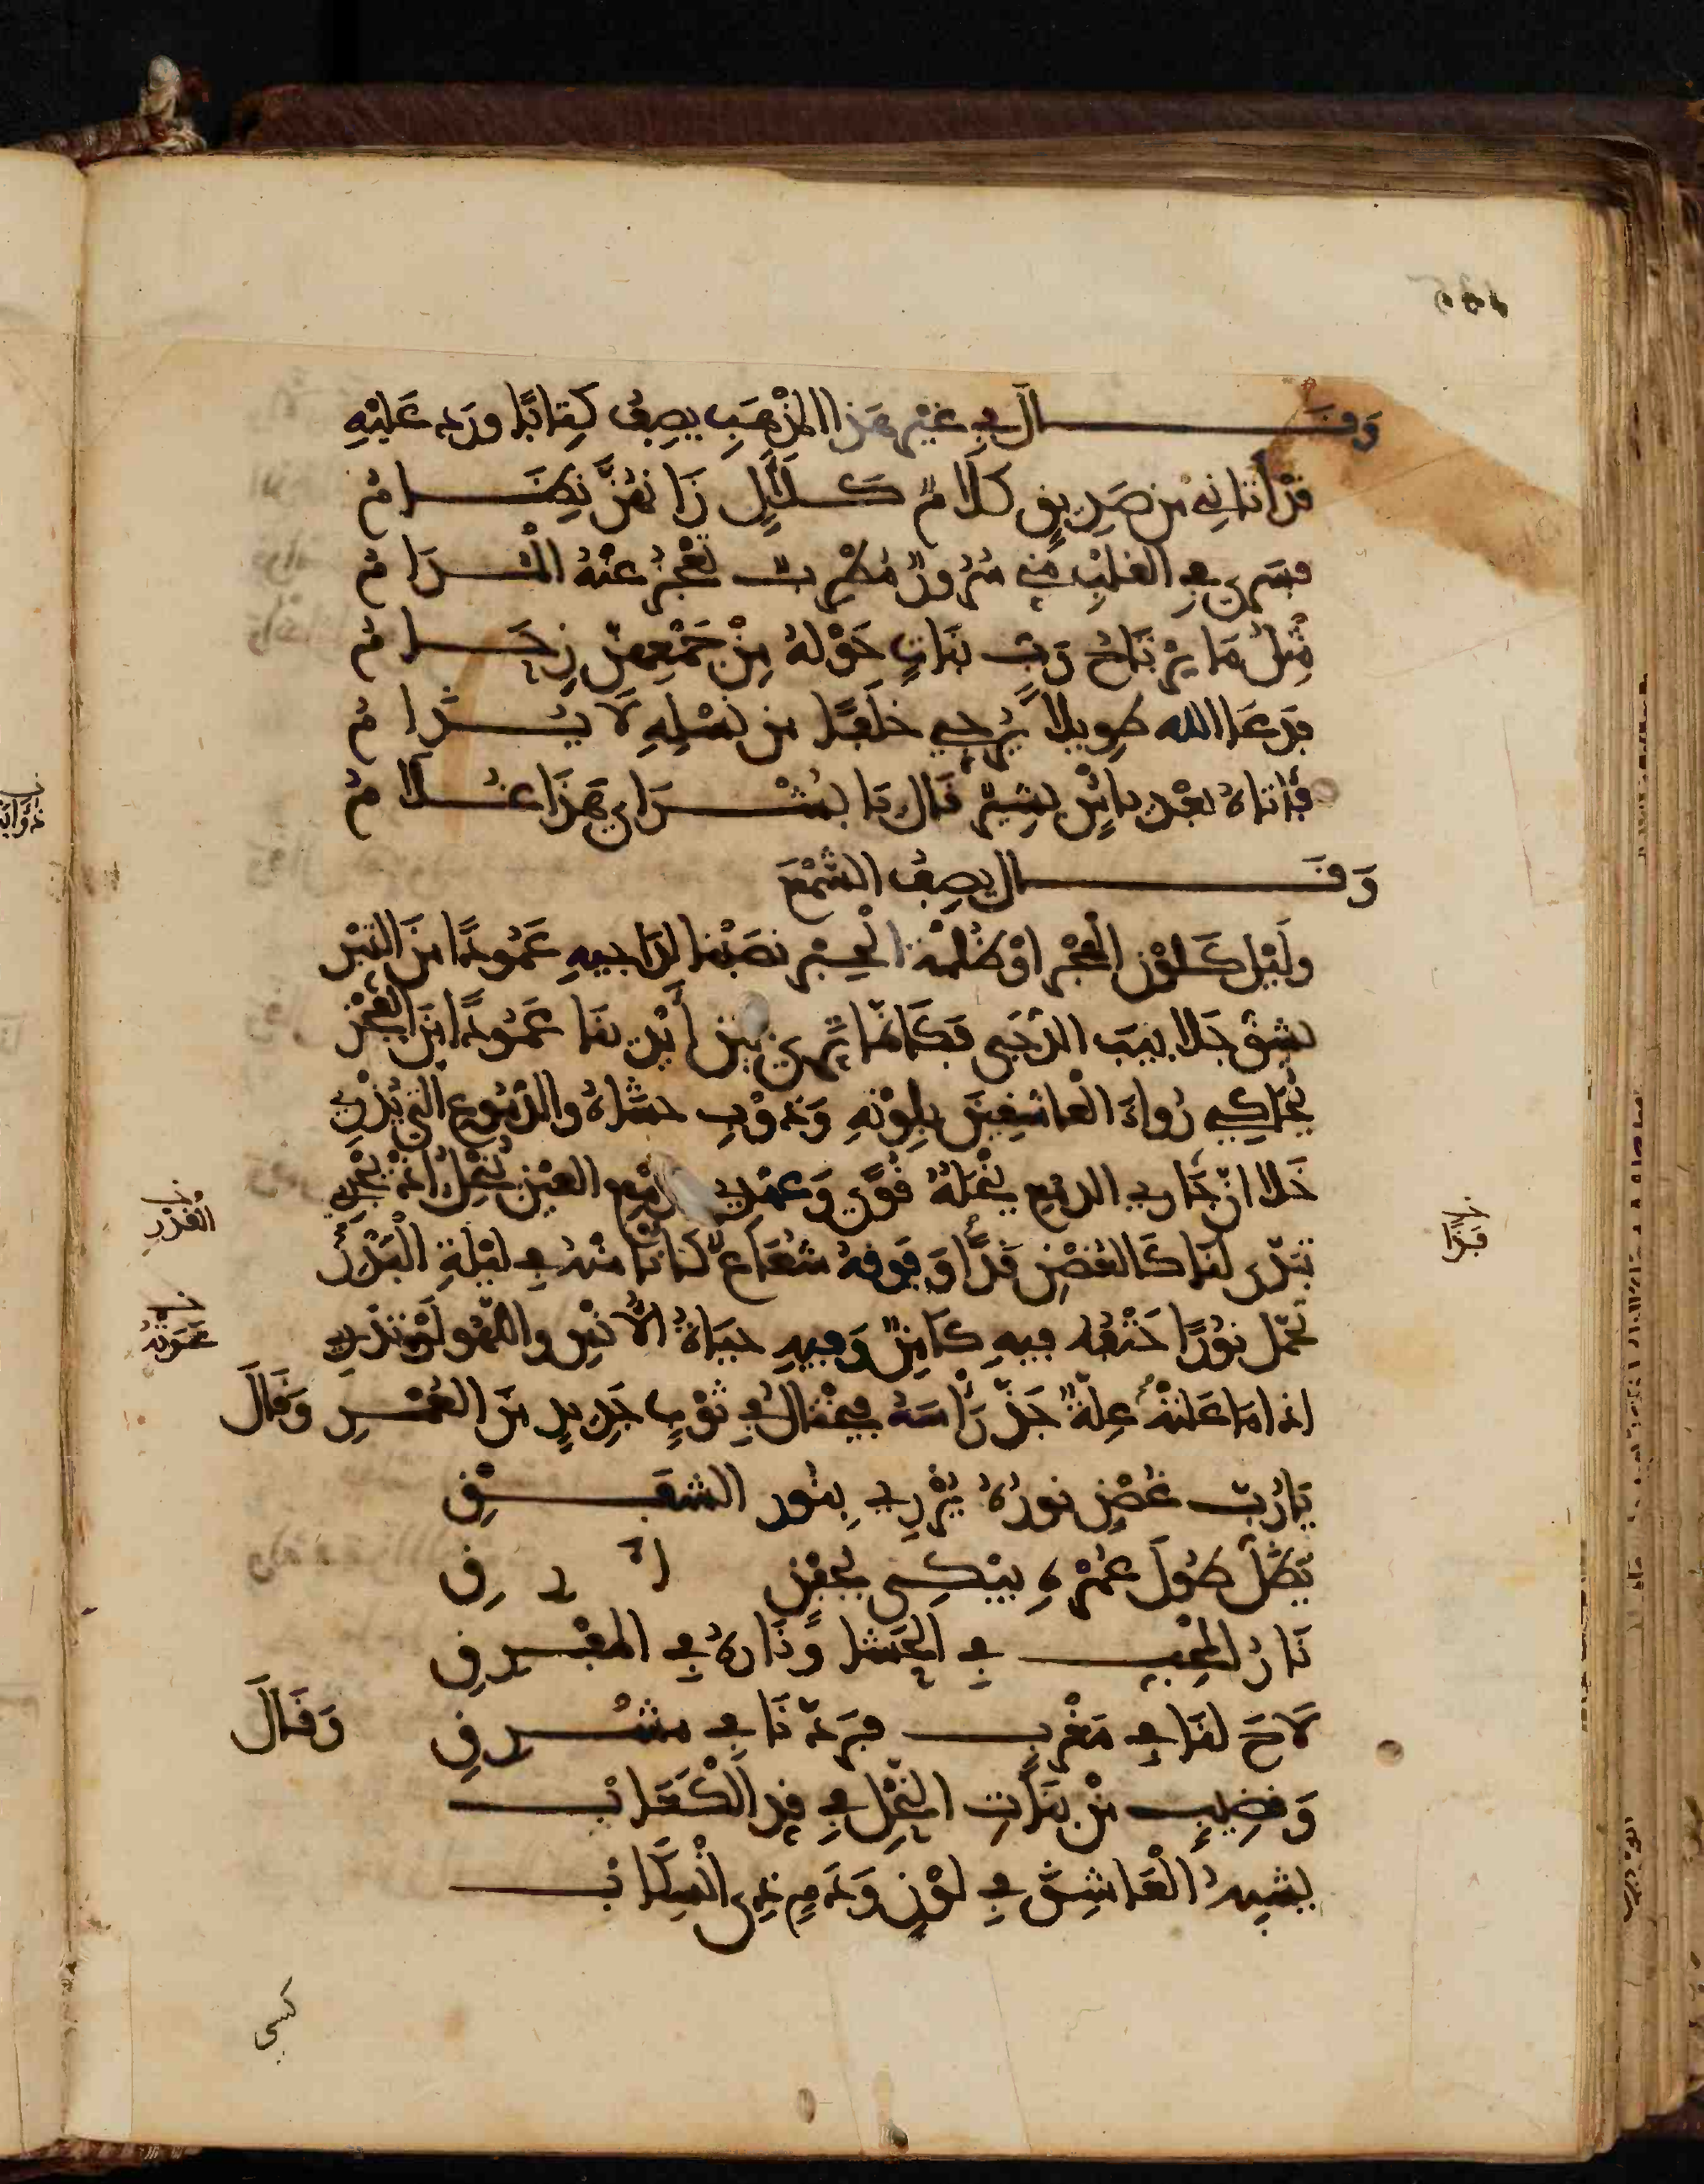 وَقَـــــال في غيْر هَذا المذْهَبِ يصِفُ كِتابًا ورَد عَليْهِ
قدْ أتانِي من صَدِيقٍ كلَامٌ كَــلَآلٍ زَانهُنَّ نِظَــامُ
فسَرى في القلبِ مني سُرورٌ مُطْرِبٌ تعْجزُ عنْهُ الْمُــدَامُ
مِثلُ مَا يرْتَاحُ رَبُّ بَنَاتٍ حَوْلهُ مِنْ جَمْعِهِنّ زِحَــامُ
فدَعَا الله طويلاً يُرجي خلَفًا من نسْلِهِ لَا يُــذَامُ
فأتاهُ بعْد يأسٍ بشيرٌ قال يَا بُشْــرَاي هَذَا غُــلامُ
وَقَـــــال يصِفُ الشَّمْعَ
ولَيْل كَلوْن الهجْر أوْ ظلمة الحِبْر نصَبْنا لدَاجيهِ عَمُودًا منَ التبْر
يشق جَلابيبَ الدّجَى فكَأنّما يُرى بين أيْدينَا عَمُودًا مِنَ الفجْر
يُحَاكِي رُواءَ العَاشِقِينَ بلوْنهِ وَذوْبِ حشَاهُ والدّمُوعِ التي تذْرِي
خَلا أنّ جَارِي الدمع يُنحلهُ قوًى وعهْدِي بدمْع العَيْن يُنحلُ إذْ يجْرِي
تبَدّى لنَا كَالغُصْنِ قدًّا وَفوقهُ شعَاعٌ كأنّا منهُ في ليْلةِ الْبَدْرِ
تحمّل نورًا حَتْفُه فيهِ كَامِنٌ وَفيهِ حيَاةُ الأُنْسِ واللّهْو لوْ تدْرِي
إذا مَا عَلتهُ عِلةٌ جَزّ رَأْسَهُ فيخْتالُ في ثوْبٍ جَدِيدٍ منَ العُمْــرِ وَقَالَ
يَا رُبّ غُصْنٍ نورُهُ يُزْرِي بنُور الشفَــقِ
يَظَلّ طُولَ عُمْرهِ يبْكِي بجفْن أرقِ
نَارُ المُحِبّ في الحشَا وَنارهُ في المفْــرقِ
لَاحَ لنَا في مَغْرِب فرَدّنَا في مشْــرقِ وَقَالَ
وَقضِيبٍ منْ بَنَاتِ النحْل في قدّ الكَعَابْ
يشبهُ العَاشِقَ في لوْنٍ وَدَمْعٍ ذِي انْسِكَابْ
كسي
القدْرِ
عَرَتْهُ
قدًّا